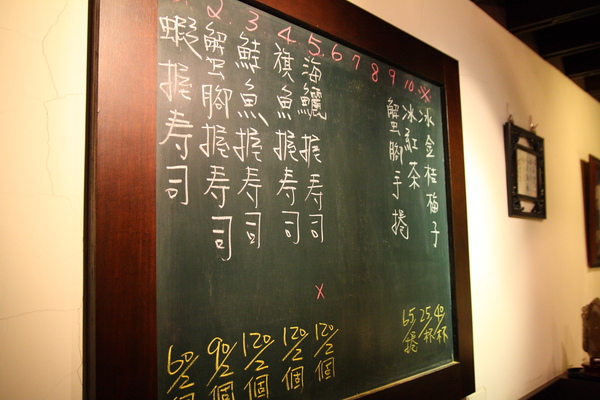 2 3 4 5. 6 7 8 9 10 ※
蝦握寿司
蟹腳握寿司
鮭魚握寿司
旗魚握寿司
海鱺握寿司
蟹腳手捲
冰紅茶
冰金桂梅子
x
60/2個
90/2個
120/2個
120/2個
120/2個
65/捲
25/杯
40/杯